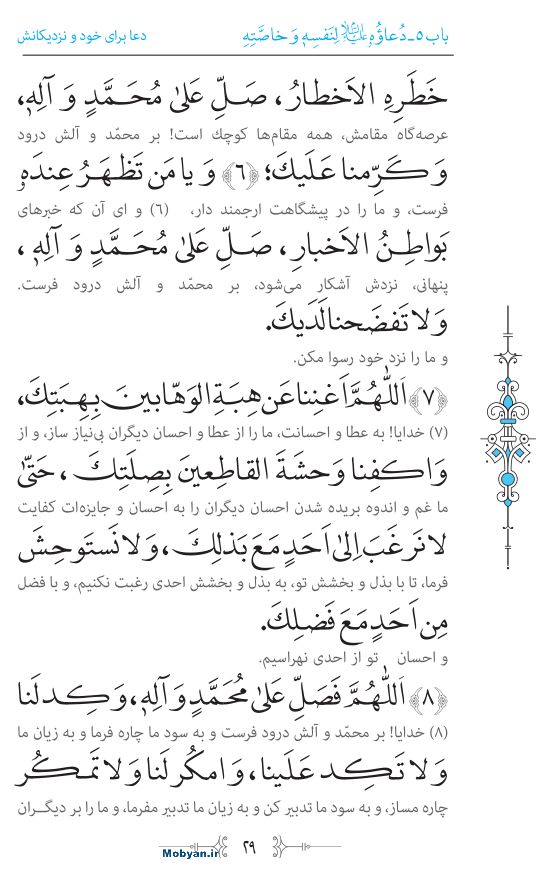 باب ۵ـ دُعاؤُهُ علیه‌السلام لِنَفسِهِ وَ خاصَّتِهِ
دعا برای خود و نزدیکانش
خَطَرِهِ الاَخطارُ، صَلِّ عَلىٰ مُحَمَّدٍ وَ آلِهِ،
عرصه‌گاه مقامش، همه مقام‌ها کوچك است! بر محمّد و آلش درود
وَ كَرِّمنا عَلَيكَ؛ ﴿۶﴾ وَ يا مَن تَظهَرُ عِندَهُ
فرست، و ما را در پیشگاهت ارجمند دار، (۶) و ای آن که خبرهای
بَواطِنُ الاَخبارِ، صَلِّ عَلىٰ مُحَمَّدٍ وَ آلِهِ،
پنهانی، نزدش آشکار می‌شود، بر محمّد و آلش درود فرست.
وَلا تَفضَحنا لَدَيكَ.
و ما را نزد خود رسوا مکن.
﴿۷﴾ اَللّٰهُمَّ اَغنِنا عَن هِبَةِ الوَهّابينَ بِهِبَتِكَ،
(۷) خدایا! به عطا و احسانت، ما را از عطا و احسان دیگران بی‌نیاز ساز، و از
وَ اكفِنا وَحشَةَ القاطِعينَ بِصِلَتِكَ، حَتّىٰ
ما غم و اندوه بریده شدن احسان دیگران را به احسان و جایزه‌ات کفایت
لا نَرغَبَ اِلىٰ اَحَدٍ مَعَ بَذلِكَ، وَلا نَستَوحِشَ
فرما، تا با بذل و بخشش تو، به بذل و بخشش احدی رغبت نکنیم، و با فضل
مِن اَحَدٍ مَعَ فَضلِكَ.
و احسان تو از احدی نهراسیم.
﴿۸﴾ اَللّٰهُمَّ فَصَلِّ عَلىٰ مُحَمَّدٍ وَ آلِهِ، وَ كِد لَنا
(۸) خدایا! بر محمّد و آلش درود فرست و به سود ما چاره فرما و به زیان ما
وَلا تَكِد عَلَينا، وَ امكُر لَنا وَلا تَمكُر
چاره مساز، و به سود ما تدبیر کن و به زیان ما تدبیر مفرما، و ما را بر دیگران
۲۹
Mobyan.ir